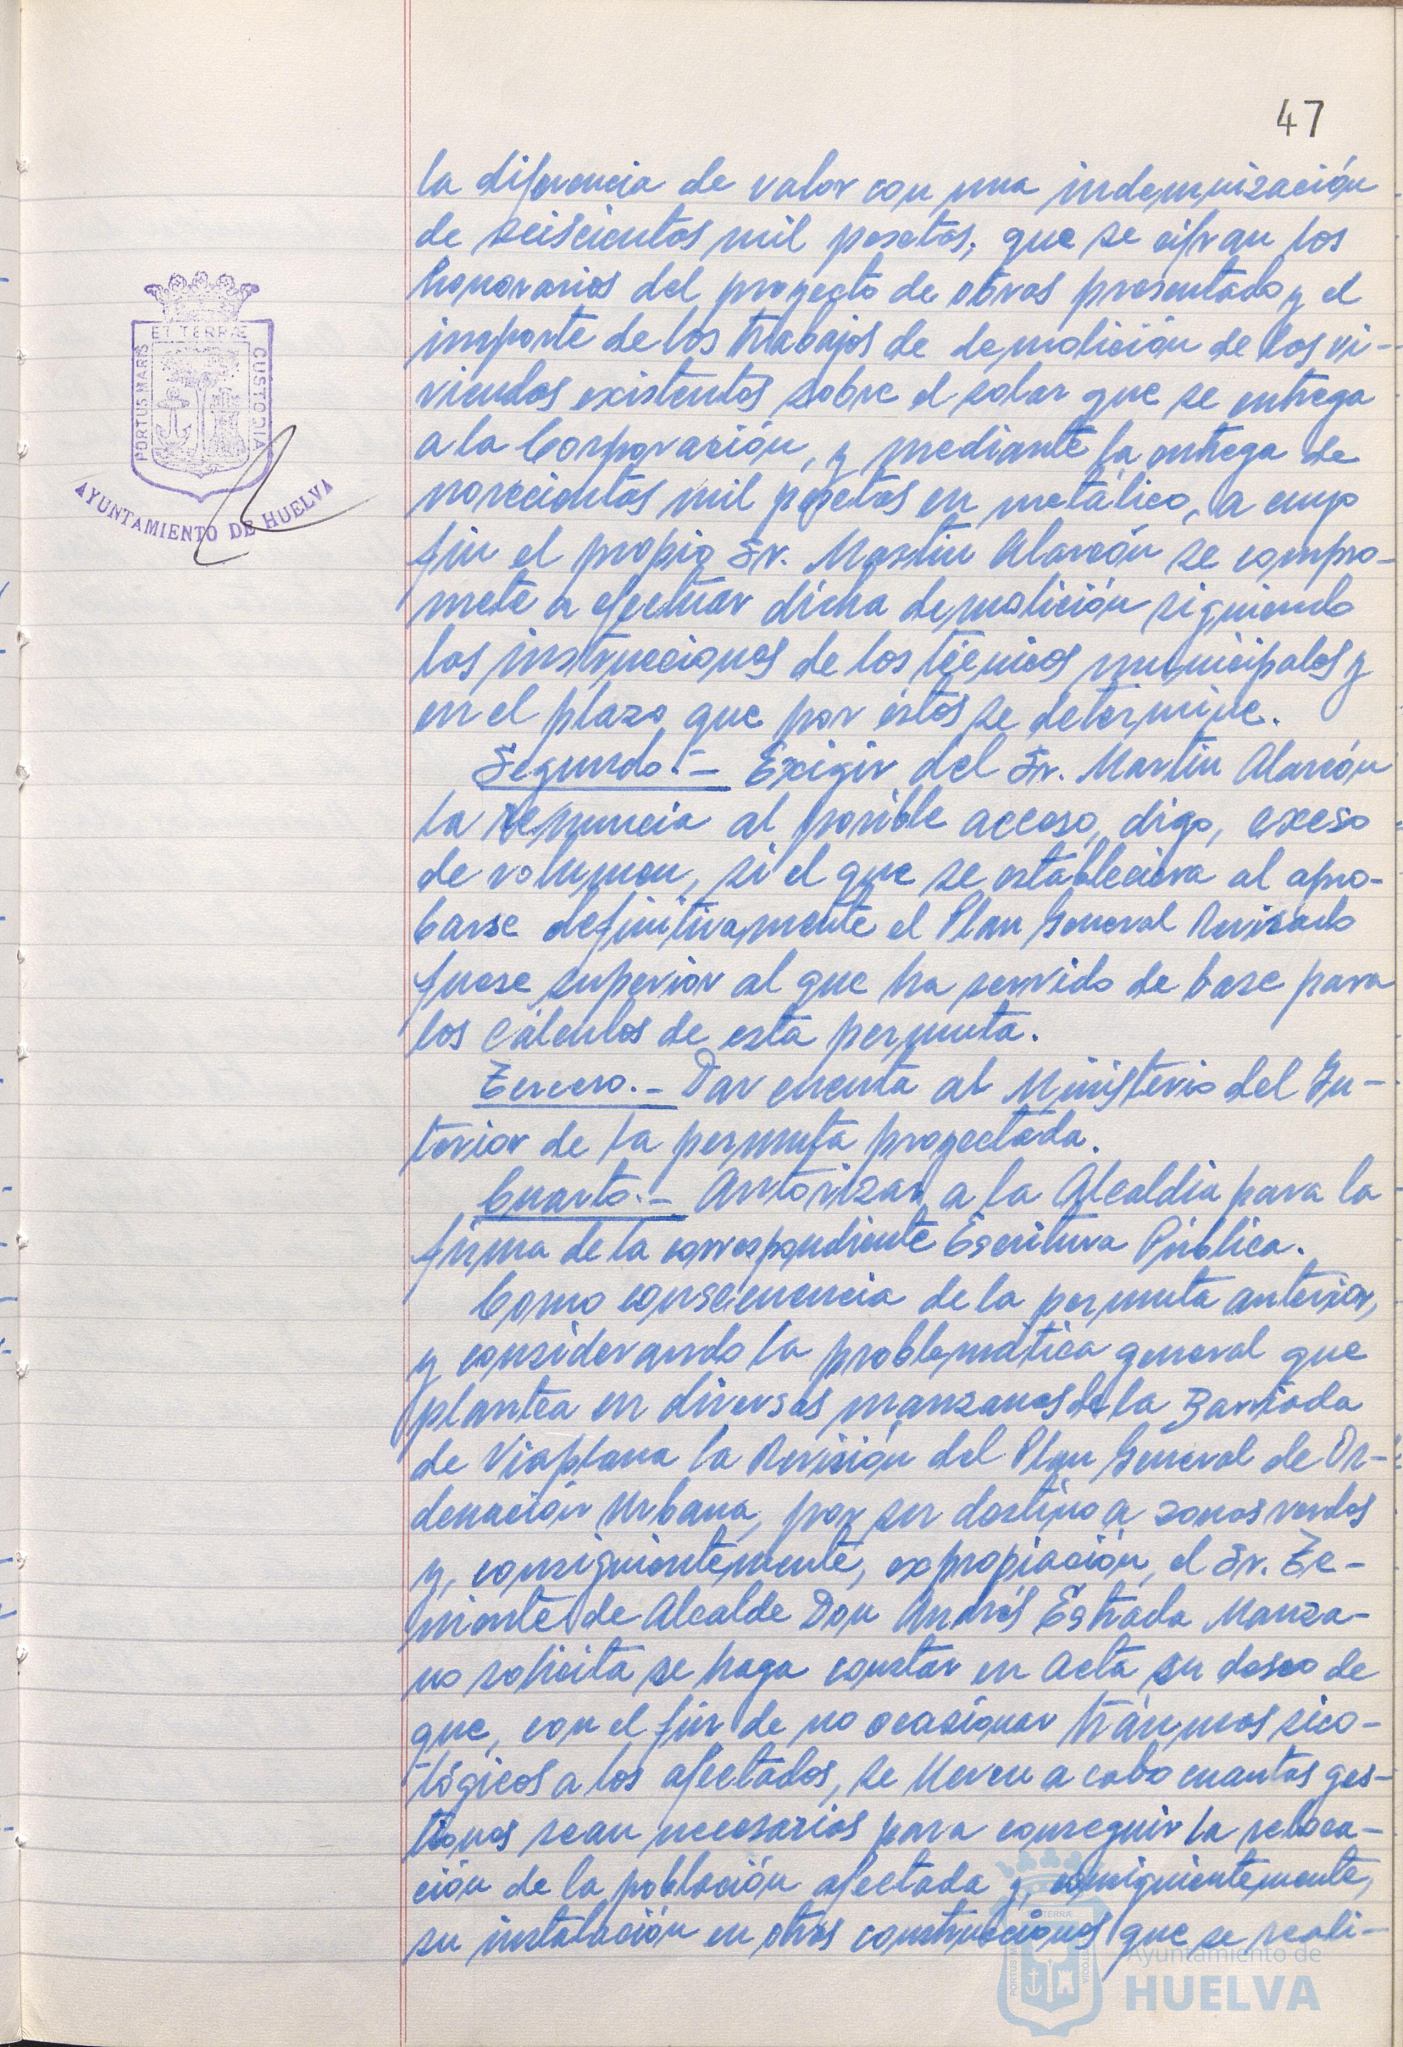 47
la diferencia de valor con una indemnización
de seiscientas mil pesetas, que se cifran los
honorarios del proyecto de obras presentado y el
importe de los trabajos de demolición de las vi-
viendas existentes sobre el solar que se entrega
a la Corporación, y mediante la entrega de
novecientas mil pesetas en metálico, a cuyo
fin el propio Sr. Martin Alarcón se compro-
mete a efectuar dicha demolición siguiendo
las instrucciones de los técnicos municipales y
en el plazo que por éstos se determine.
Segundo.- Exigir del Sr. Martin Alarcón
la renuncia al posible acceso, digo, exceso
de volumen, si el que se estableciera al apro-
barse definitivamente el Plan General Revisado
fuese superior al que ha servido de base para
los cálculos de esta permuta.
Tercero.- Dar cuenta al Ministerio del In-
terior de la permuta proyectada.
Cuarto.- Autorizar a la Alcaldia para la
firma de la correspondiente Escritura Pública.
Como consecuencia de la permuta anterior,
y considerando la problemática general que
plantea en diversas manzanas de la Barriada
de Viaplana la Revisión del Plan General de Or-
denación Urbana, por su destino a zonas verdes
y, consiguientemente, expropiación, el Sr. Te-
niente de Alcalde Don Andrés Estrada Manza-
no solicita se haga constar en Acta su deseo de
que, con el fin de no ocasionar traumas sico-
lógicos a los afectados, se lleven a cabo cuantas ges-
tiones sean necesarias para conseguir la reloca-
ción de la población afectada y, consiguientemente,
su instalación en otras construcciones que se reali-
PORTUS MARIS ET TERRÆ CUSTODIA
AYUNTAMIENTO DE HUELVA
Ayuntamiento de
HUELVA